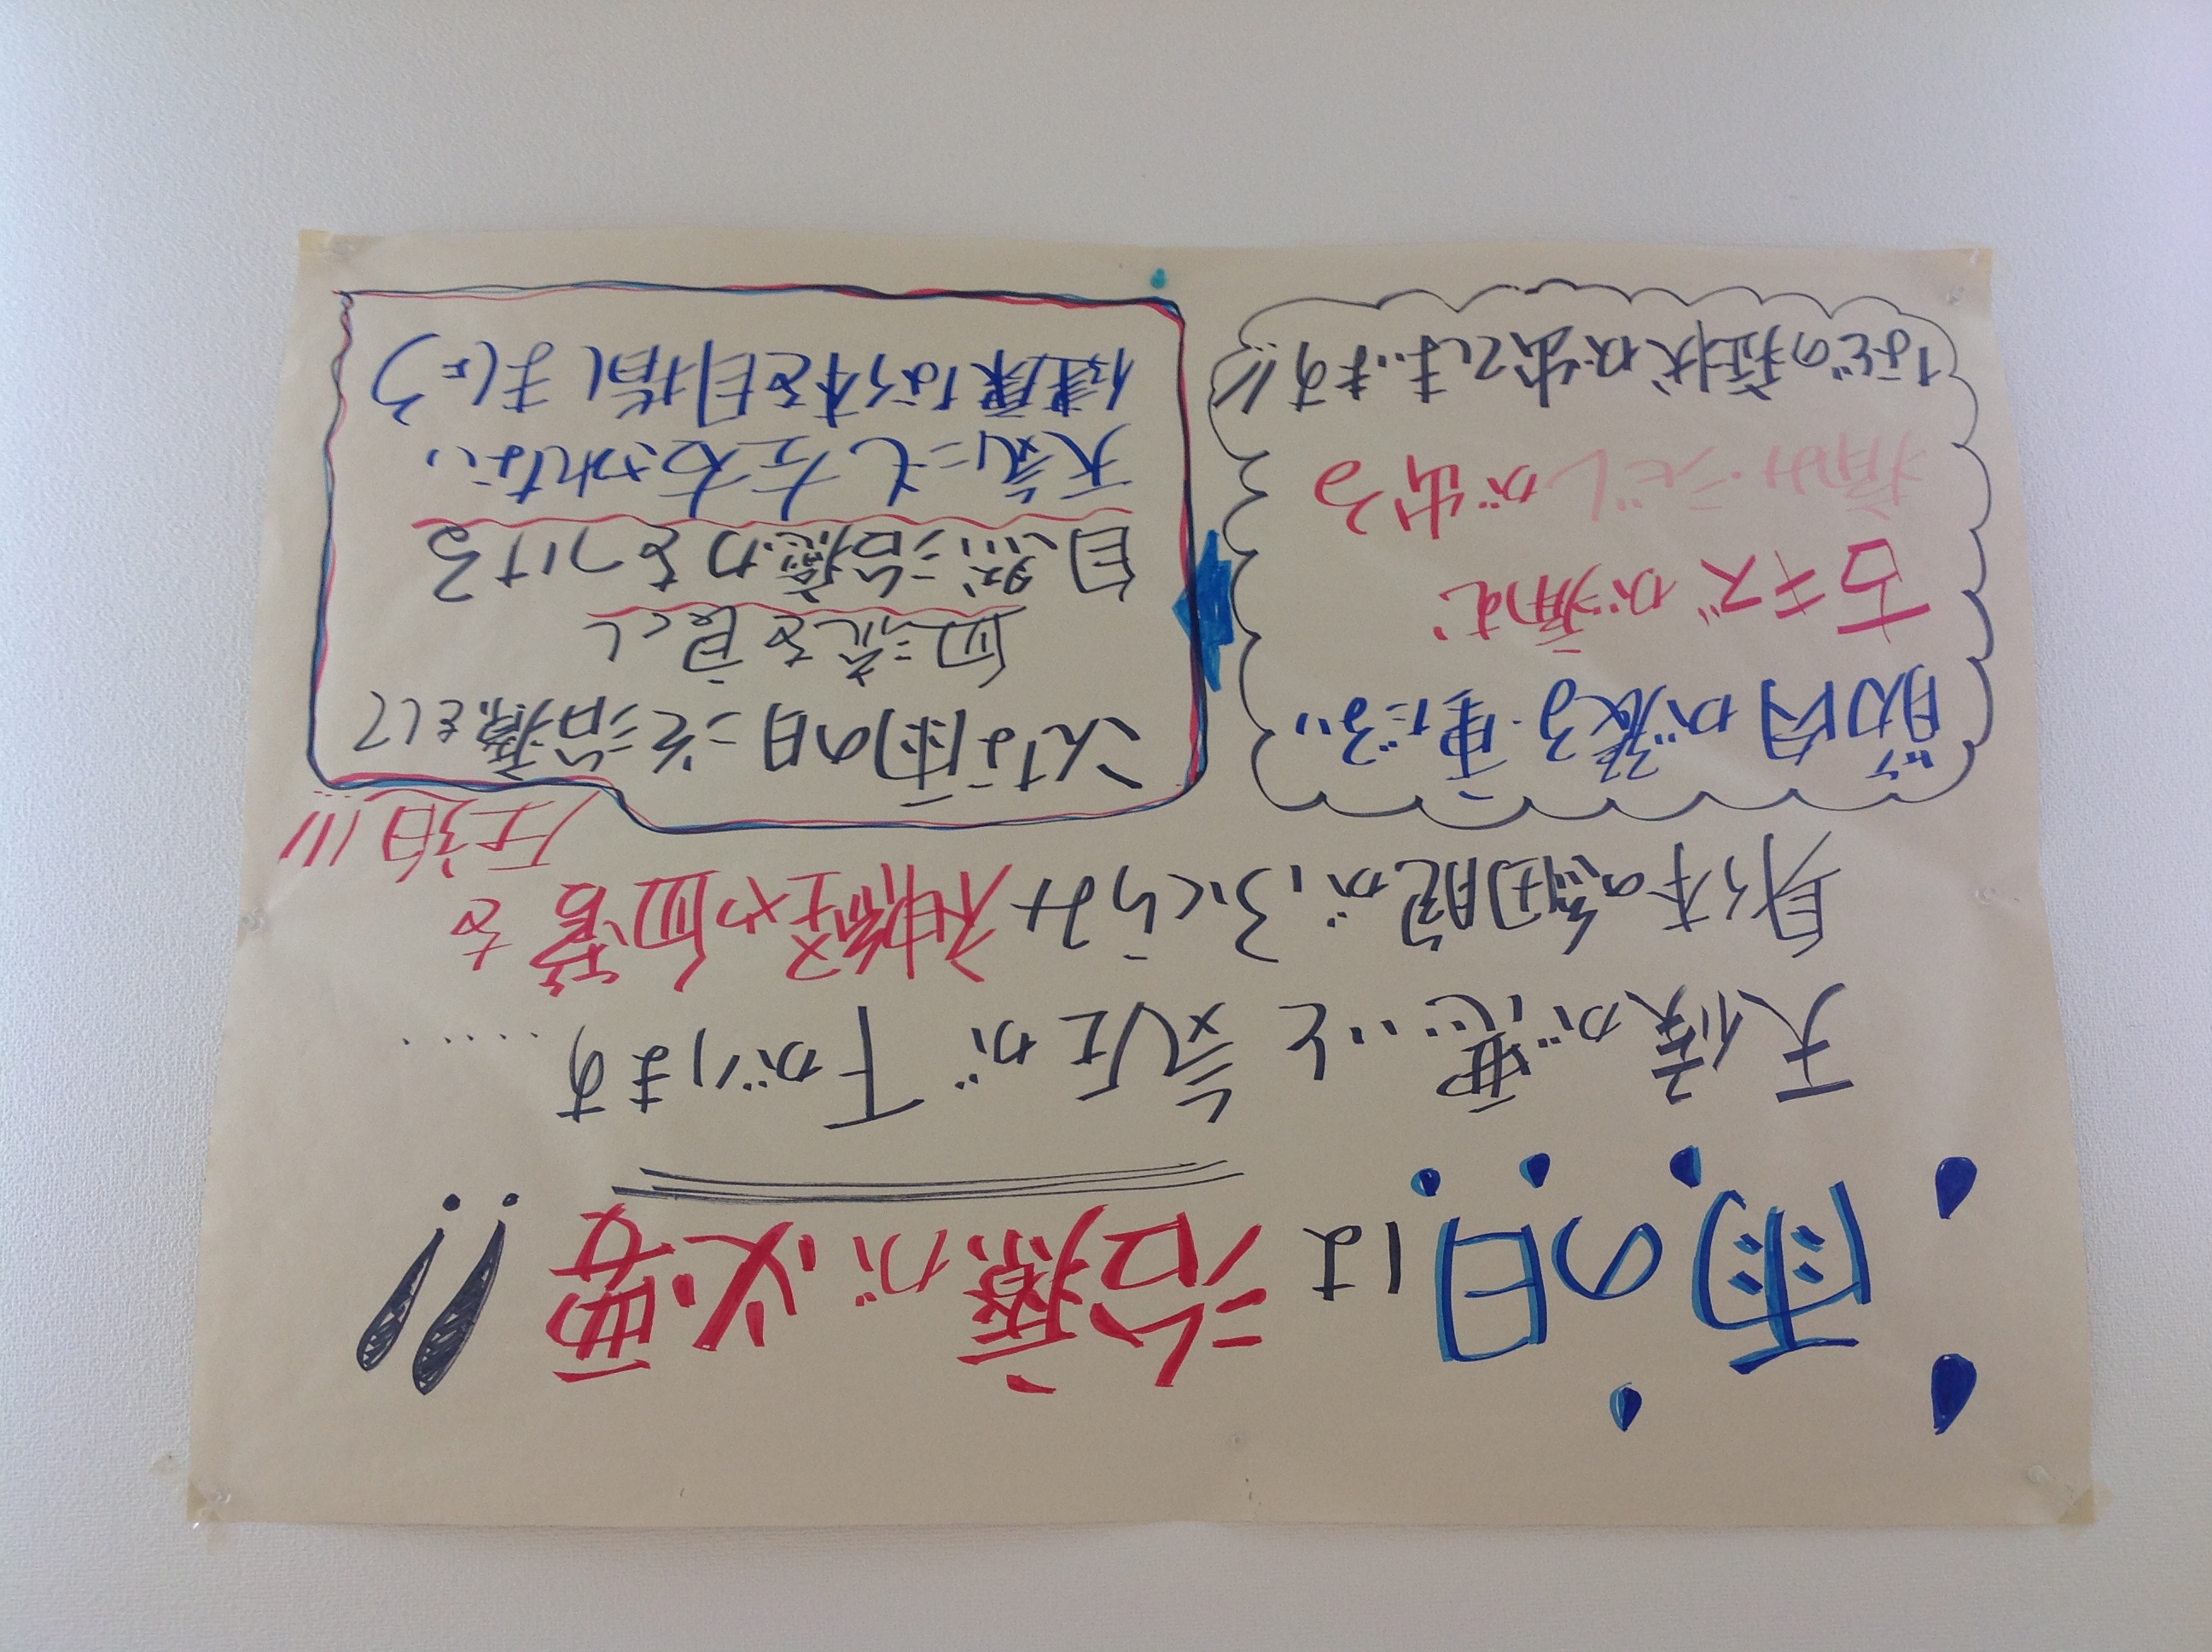 雨の日は治療が必要!!
天候が悪いと気圧が下がります……
身体の細胞がふくらみ神経や血管を
圧迫!!!
筋肉が張る・重だるい
古キズが痛む
痛み・シビレが出る
などの症状が出てしまいます!!
こんな雨の日こそ治療をして
血流を良くし
自然治癒力をつける
天気にも左右されない
健康な体を目指しましょう